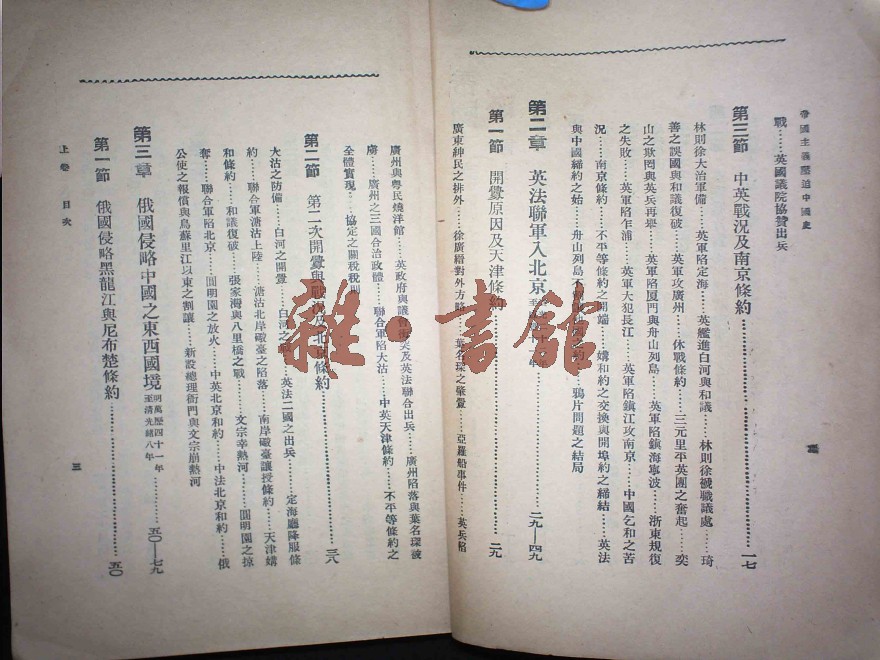 帝國主義壓迫中國史
戰……英國議院協贊出兵
第三節 中英戰況及南京條約……一七
林則徐大治軍備……英軍陷定海……英艦進白河與和議……林則徐褫職議處……琦
善之誤國與和議復破……英軍攻廣州……休戰條約……三元里平英團之奮起……奕
山之欺罔與英兵再舉……英軍陷厦門與舟山列島……英軍陷鎮海寧波……浙東規復
之失敗……英軍陷乍浦……英軍大犯長江……英軍陷鎮江攻南京……中國乞和之苦
況……南京條約……不平等條約之開端……媾和約之交換與開埠約之締結……英法
與中國締約之始……舟山列島不割讓……鴉片問題之結局
第二章 英法聯軍入北京……二九—四九
第一節 開釁原因及天津條約……二九
廣東紳民之排外……徐廣縉對外方略……葉名琛之肇釁……亞羅船事件……英兵陷
廣州與粵民燒洋館……英政府與議會衝突及英法聯合出兵……廣州陷落與葉名琛被
虜……廣州之三國合治政體……聯合軍陷大沽……中英天津條約……不平等條約之
全體實現……協定之關稅稅則
第二節 第二次開釁與戰況及北京條約……三八
大沽之防備……白河之開釁……白河之戰……英法二國之出兵……定海廳降服條
約……聯合軍溏沽上陸……溏沽北岸礮臺之陷落……南岸礮臺讓授條約……天津媾
和條約……和議復破……張家灣與八里橋之戰……文宗幸熱河……圓明園之掠
奪……聯合軍陷北京……圓明園之放火……中英北京和約……中法北京和約……俄
公使之報償與烏蘇里江以東之割讓……新設總理衙門與文宗崩熱河
第三章 俄國侵略中國之東西國境 明萬歷四十一年至清光緒八年……五〇—七九
第一節 俄國侵略黑龍江與尼布楚條約……五〇
上卷 目次
三
雜·書館